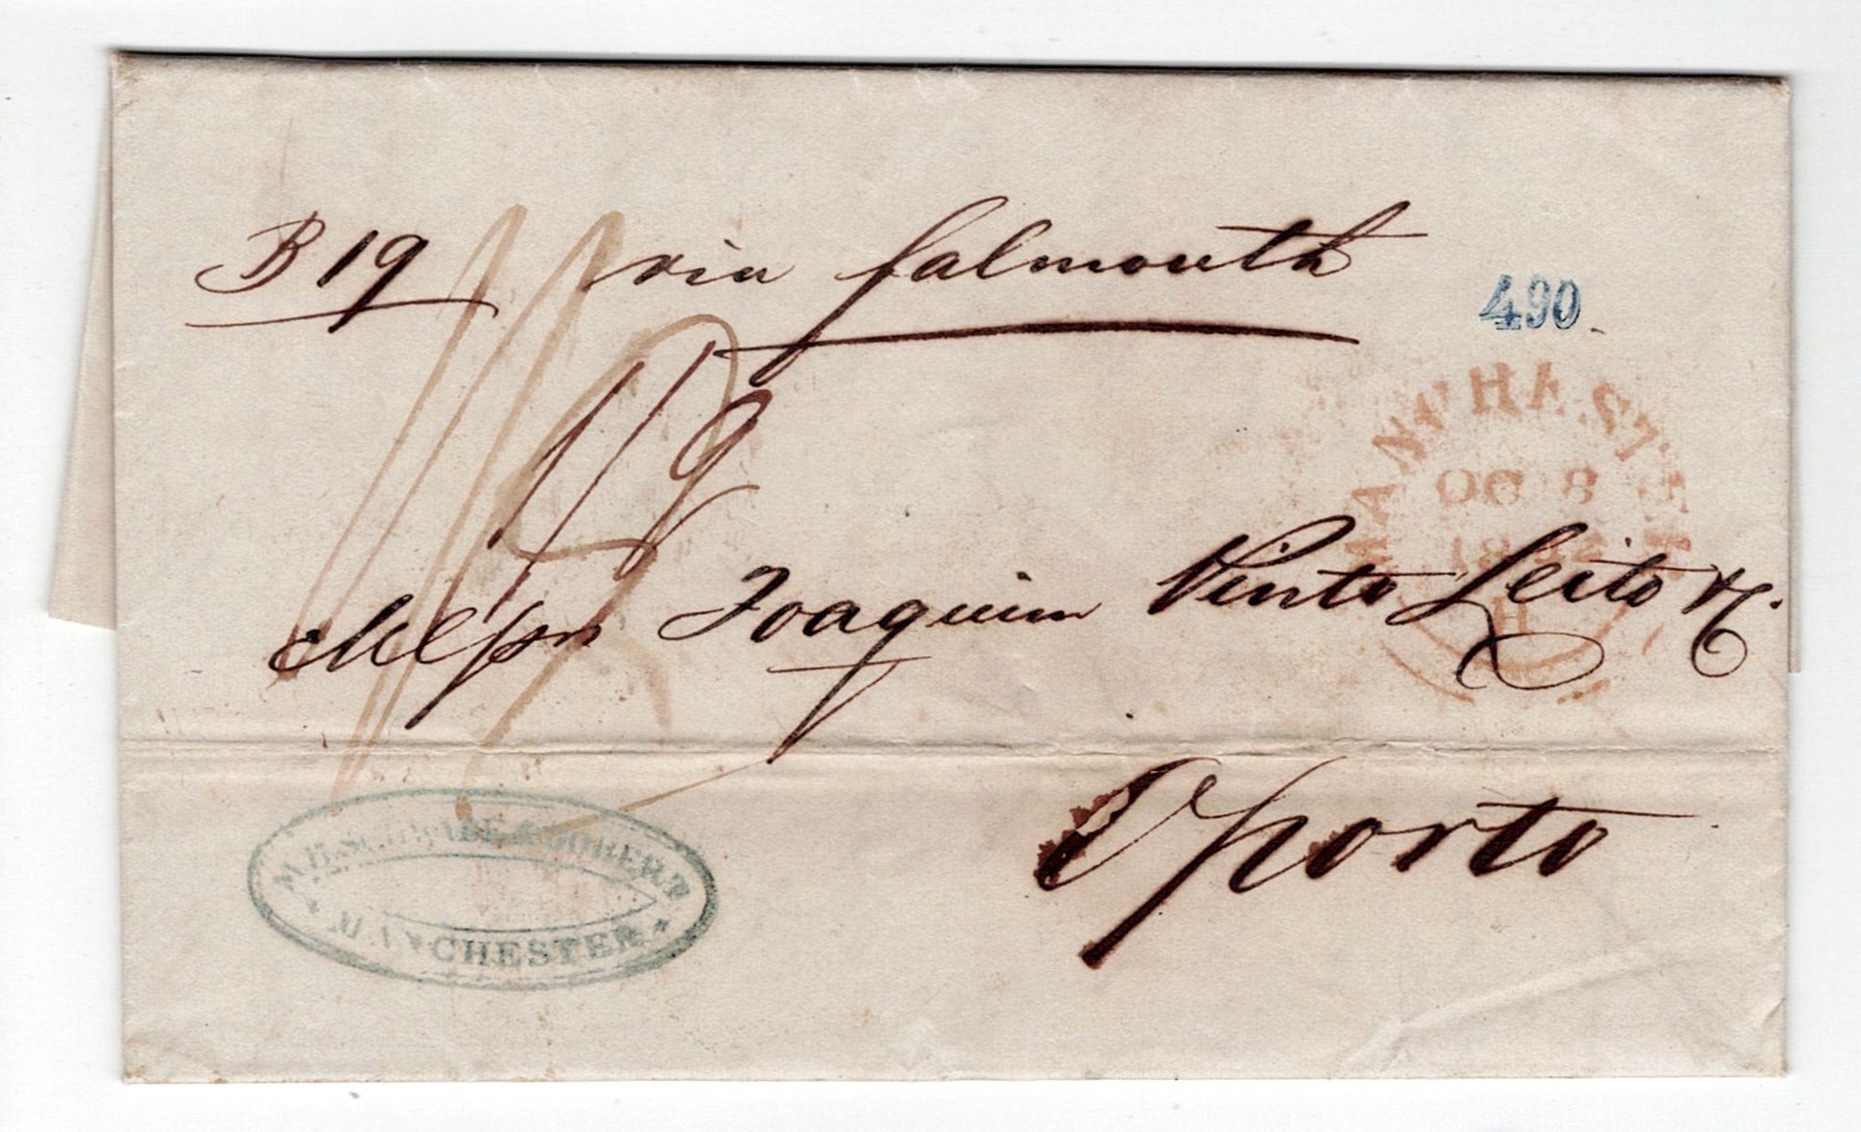 B 19 via falmouth
490
MANCHESTER
OC 8
Messrs Joaquim Pinto Leite & C.
Oporto
& GOBERT
MANCHESTER